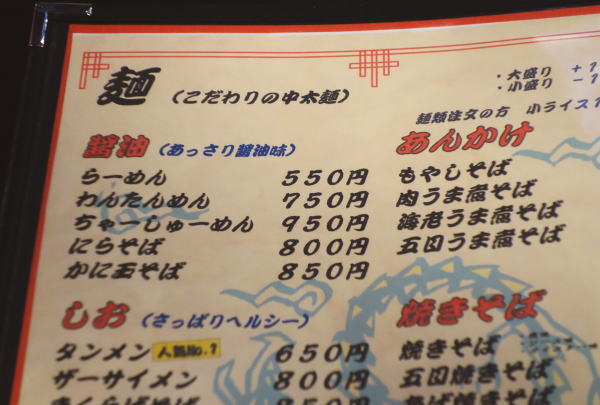 麺 (こだわりの中太麺)
・大盛り +1
・小盛り -1
麺類注文の方 小ライス1
醤油 (あっさり醤油味)
らーめん 550円
わんたんめん 750円
ちゃーしゅーめん 950円
にらそば 800円
かに玉そば 850円
あんかけ
もやしそば
肉うま煮そば
海老うま煮そば
五目うま煮そば
しお (さっぱりヘルシー)
タンメン 人気No.1 650円
ザーサイメン 800円
きくらげそば 850円
焼きそば
焼きそば
五目焼きそば